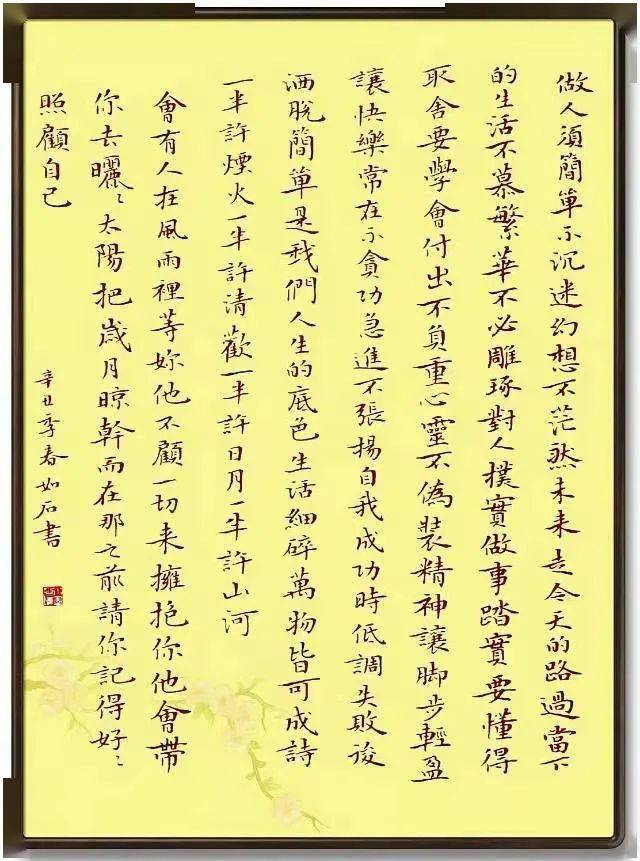 做人須簡單不沉迷幻想不茫然未来走今天的路過當下
的生活不慕繁華不必雕琢對人樸實做事踏實要懂得
取舍要學會付出不負重心靈不偽裝精神讓脚步輕盈
讓快樂常在不貪功急進不張揚自我成功時低調失敗後
洒脫簡單是我們人生的底色生活細碎萬物皆可成詩
一半許煙火一半許清歡一半許日月一半許山河
會有人在風雨裡等妳他不顧一切来擁抱你他會帶
你去曬〻太陽把歲月晾幹而在那之前請你記得好〻
照顧自己
辛丑季春如石書